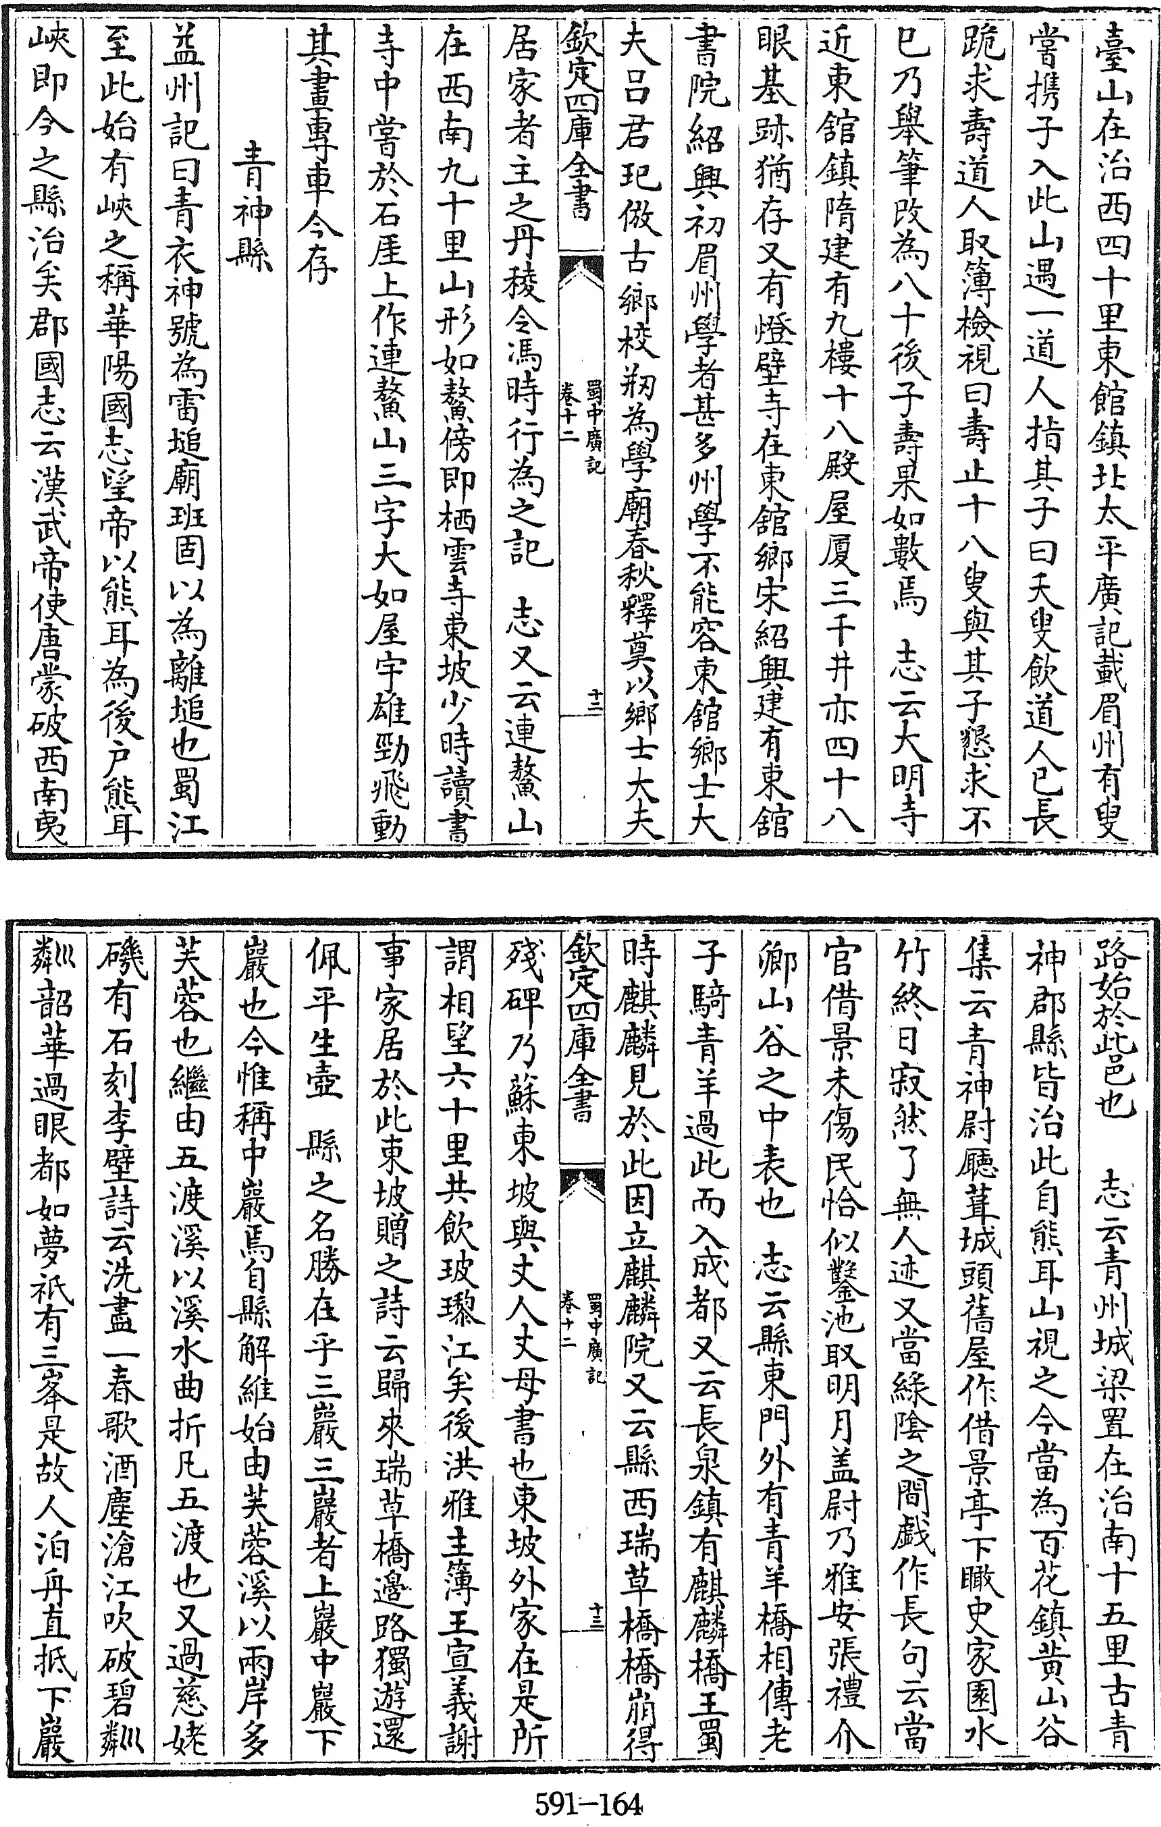 臺山在治西四十里東館鎮北太平廣記載眉州有叟
嘗携子入此山遇一道人指其子曰夭叟飲道人已長
跪求壽道人取簿檢視曰壽止十八叟與其子懇求不
已乃舉筆改為八十後子壽果如數焉 志云大明寺
近東館鎮隋建有九樓十八殿屋厦三千井亦四十八
眼基跡猶存又有燈壁寺在東舘鄉宋紹興建有東舘
書院紹興初眉州學者甚多州學不能容東舘鄉士大
夫吕君玘倣古鄉校剏為學廟春秋釋奠以鄉士大夫
欽定四庫全書
蜀中廣記
卷十二
十二
居家者主之丹稜令馮時行為之記 志又云連鰲山
在西南九十里山形如鰲傍即栖雲寺東坡少時讀書
寺中嘗於石厓上作連鰲山三字大如屋宇雄勁飛動
其畫專車今存
青神縣
益州記曰青衣神號為雷塠廟班固以為離塠也蜀江
至此始有峽之稱華陽國志望帝以熊耳為後户熊耳
峽即今之縣治矣郡國志云漢武帝使唐蒙破西南夷
路始於此邑也 志云青州城梁置在治南十五里古青
神郡縣皆治此自熊耳山視之今當為百花鎮黄山谷
集云青神尉廳葺城頭舊屋作借景亭下瞰史家園水
竹終日寂然了無人迹又當綠陰之間戯作長句云當
官借景未傷民恰似鑿池取明月盖尉乃雅安張禮介
卿山谷之中表也 志云縣東門外有青羊橋相傳老
子騎青羊過此而入成都又云長泉鎮有麒麟橋王蜀
時麒麟見於此因立麒麟院又云縣西瑞草橋橋崩得
欽定四庫全書
蜀中廣記
卷十二
十三
殘碑乃蘇東坡與丈人丈母書也東坡外家在是所
謂相望六十里共飲玻瓈江矣後洪雅主簿王宣義謝
事家居於此東坡贈之詩云歸來瑞草橋邊路獨遊還
佩平生壺 縣之名勝在乎三巖三巖者上巖中巖下
巖也今惟稱中巖焉自縣解維始由芙蓉溪以兩岸多
芙蓉也繼由五渡溪以溪水曲折凡五渡也又過慈姥
磯有石刻李壁詩云洗盡一春歌酒塵滄江吹破碧粼
粼韶華過眼都如夢祇有三峯是故人泊舟直抵下巖
591-164